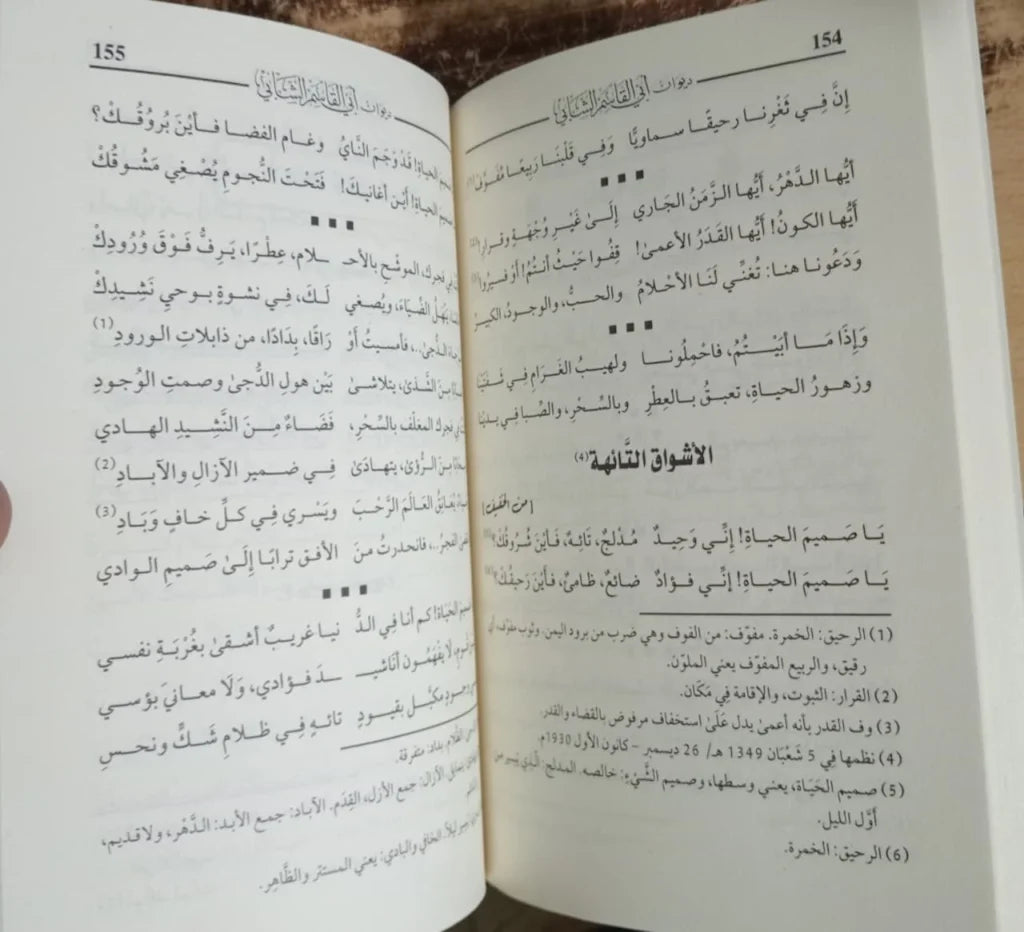 154
ديوان أبي القاسم الشابي
إِنَّ فِي ثَغْرِنا رحيقًا سماويًّا وَفِي قَلْبنَا رَبِيعًا مُفَوَّفْ
■ ■ ■
أيُّها الدَّهْرُ، أيُّها الزَّمَنُ الجاري إِلَىٰ غَيْرِ وُجْهَةٍ وقرارِ
أيُّها الكونُ! أيُّها القَدَرُ الأعمىٰ! قِفُوا حَيْثُ أنتمُ! أوْ فسِيرُوا
وَدَعُونا هنا: تُغنِّي لَنَا الأحْلامُ والحبُّ، والوجودُ، الكبيرُ
■ ■ ■
وَإِذَا مَا أبَيْتُمُ، فاحْمِلُونا ولهيبُ الغَرَامِ فِي شَفَتَيْنَا
وزهورُ الحياةِ، تعبقُ بالعِطْرِ وبالسِّحْرِ، والصِّبا في يديْنَا
الأشواق التَّائهة (4)
[من الخفيف]
يَا صَميمَ الحياةِ! إِنِّي وَحِيدٌ مُدْلجٌ، تَائِهٌ، فَأَيْنَ شُرُوقُكْ؟
يَا صَمِيمَ الحياةِ! إنِّي فؤادٌ ضائعٌ، ظامئٌ، فَأَيْنَ رَحِيقُكْ؟
(1) الرحيق: الخمرة. مفوّف: من الفوف وهي ضرب من برود اليمن. وثوب مفوّف، أي
رقيق، والربيع المفوّف يعني الملوّن.
(2) القرار: الثبوت، والإقامة فِي مَكَان.
(3) وف القدر بأنه أعمىٰ يدل عَلَىٰ استخفاف مرفوض بالقضاء والقدر.
(4) نظمها فِي 5 شَعْبَان 1349 هـ/ 26 ديسمبر – كانون الأول 1930م.
(5) صميم الحَيَاة، يعني وسطها، وصميم الشَّيْءِ: خالصه. المدلج: الَّذِي يسير من
أوَّل الليل.
(6) الرحيق: الخمرة.
155
ديوان أبي القاسم الشابي
الحياةِ! قَدْ وَجَمَ النَّايُ وغام الفضا فأيْنَ بُرُوقُكْ؟
الحياةِ! أيْن أغانيكَ! فَتَحْتَ النُّجومِ يُصْغِي مَشُوقُكْ
■ ■ ■
في فجرك، الموشّح بالأحـ ـلام، عِطْرًا، يَرِفُّ فَوْقَ وُرُودِكْ
يَنْهَلُ الضِّيَاءَ، ويُصغي لَكَ، فِي نشوةٍ بوحي نَشِيدِكْ
الدُّجىٰ..، فأمسيتُ أوْ رَاقًا، بِدَادًا، من ذابلاتِ الورودِ (1)
مِنَ الشَّذىٰ، يتلاشىٰ بَيْن هولِ الدُّجىٰ وصمتِ الوُجودِ
في فجرك المغلّف بالسِّحْرِ، فَضَاءً مِنَ النَّشِيدِ الهادي
مِنَ الرُّؤىٰ، يتهادَىٰ فِي ضميرِ الآزالِ والآبادِ (2)
يُعَانِقُ العَالَمَ الرَّحْبَ ويَسْرِي فِي كلِّ خافٍ وَبَادِ (3)
الفجرُ..، فانحدرتُ منَ الأفقِ ترابًا إِلَىٰ صَمِيمِ الوادي
■ ■ ■
الحَيَاة! كم أنا فِي الدُّ نيا غريبٌ أشقىٰ بغُرْبَةِ نفسي
لَا يَفْهَمُون أنَاشيـ ـدَ فؤادي، وَلَا معانيَ بؤسي
وجودٍ مكبَّل بقيودٍ تائهٍ فِي ظلامِ شَكٍّ ونحسِ
الظَّلام. بداد: متفرقة.
الآزال: جمع الأزل، القِدَم. الآباد: جمع الأبد: الدَّهْر، ولا قديم،
يسير ليلًا. الخافي والبادي: يعني المستتر والظَّاهِر.